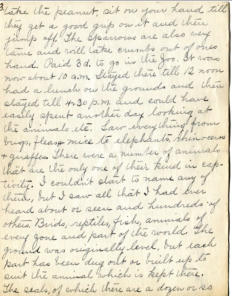 3.
take the peanut, sit on your hand till
they get a good grip on it and then
jump off. The sparrows are also very
tame and will take crumbs out of ones
hand. Paid 3d. to go in the Zoo. It was
now about 10 a.m. Stayed there till 12 noon
had a lunch on the grounds and then
stayed till 4.30 p.m and could have
easily spent another day looking at
the animals etc. Saw everything from
bugs, fleas, mice to elephants, rhinoceros
& giraffes. There were a number of animals
that are the only one of their kind in cap-
tivity. I couldn't start to name any of
them, but I saw all that I had ever
heard about or seen and hundreds of
others. Birds, reptiles, fish, animals of
every zone and part of the world. The
ground was originally level, but each
part has been dug out or built up to
suit the animal which is kept there.
The seals, of which there are a dozen or so